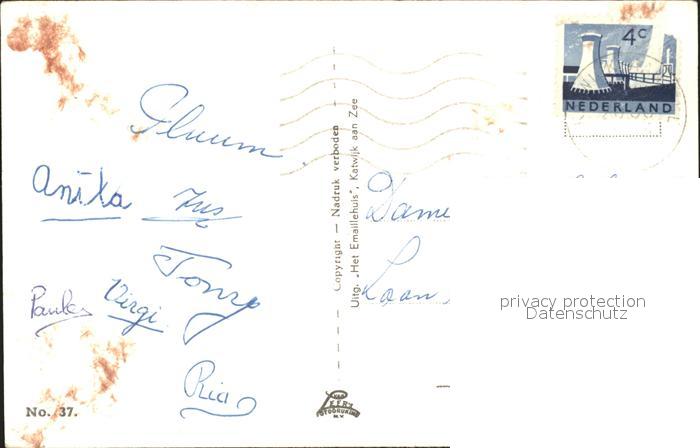 4c
NEDERLAND
Anita
Tonny
Virgi
Ria
No. 37.
Copyright — Nadruk verboden
Uitg. „Het Emaillehuis", Katwijk aan Zee
Dame
Loon
privacy protection
Datenschutz